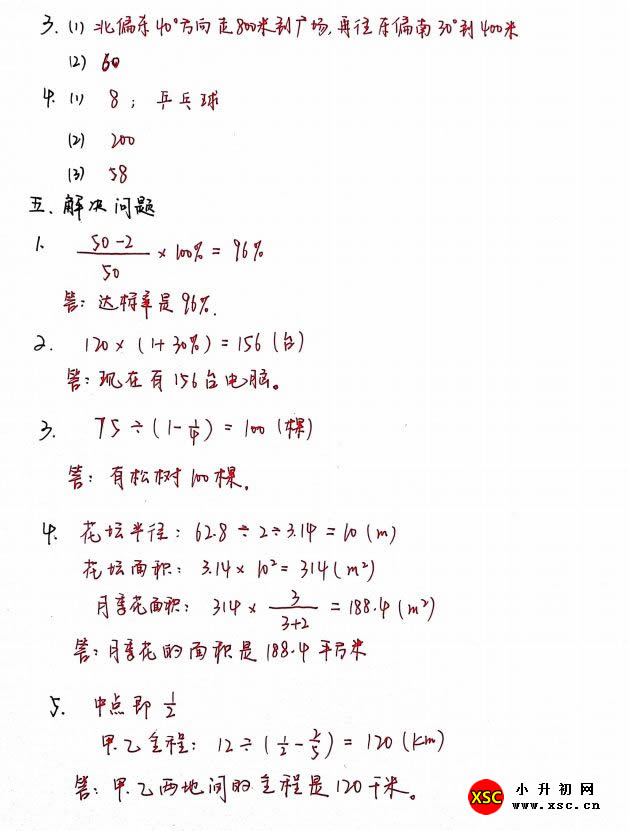 3. (1) 北偏东40°方向走800米到广场,再往东偏南30°到400米
(2) 60
4. (1) 8；乒乓球
(2) 200
(3) 58
五、解决问题
1. (50-2)/50 × 100% = 96%
答：达标率是96%.
2. 120×(1+30%)=156(台)
答：现在有156台电脑。
3. 75÷(1-1/4)=100(棵)
答：有松树100棵.
4. 花坛半径：62.8÷2÷3.14=10(m)
花坛面积：3.14×10²=314(m²)
月季花面积：314×3/(3+2)=188.4(m²)
答：月季花的面积是188.4平方米
5. 中点即1/2
甲乙全程：12÷(1/2-2/5)=120(km)
答：甲、乙两地间的全程是120千米。
XSC 小升初网
www.xsc.cn